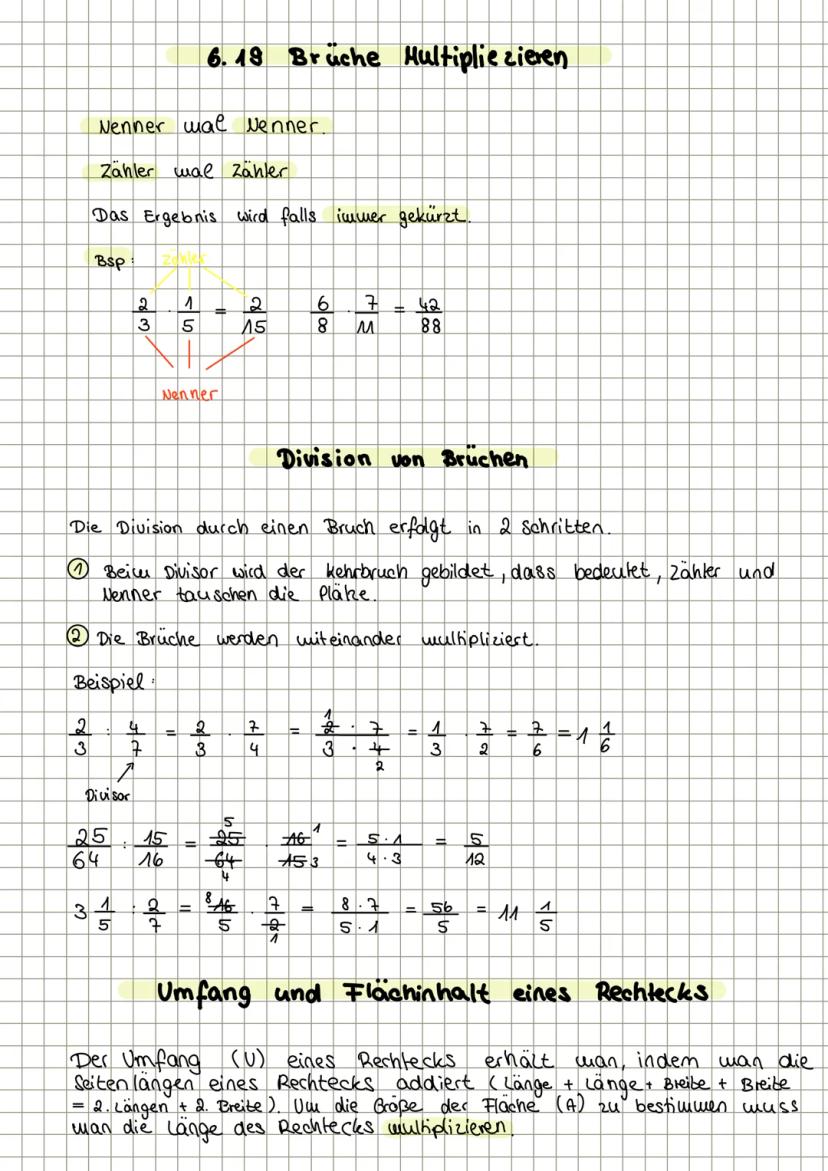 6.18 Brüche Multipliezieren
Nenner mal Nenner.
Zähler mal Zähler
Das Ergebnis wird falls immer gekürzt.
Bsp: Zähler
2/3 · 1/5 = 2/15   6/8 · 7/11 = 42/88
Nenner
Division von Brüchen
Die Division durch einen Bruch erfolgt in 2 Schritten.
① Beim Divisor wird der Kehrbruch gebildet, dass bedeutet, Zähler und
Nenner tauschen die Plätze.
② Die Brüche werden miteinander multipliziert.
Beispiel:
2/3 : 4/7 = 2/3 · 7/4 = 2 1 · 7 / 3 · 4 2 = 1/3 · 7/2 = 7/6 = 1 1/6
Divisor
25/64 : 15/16 = 25 5 / 64 4 · 16 1 / 15 3 = 5·1 / 4·3 = 5/12
3 1/5 : 2/7 = 8 16 / 5 · 7 / 2 1 = 8·7 / 5·1 = 56/5 = 11 1/5
Umfang und Flächinhalt eines Rechtecks
Der Umfang (U) eines Rechtecks erhält man, indem man die
Seitenlängen eines Rechtecks addiert (Länge + Länge + Breite + Breite
= 2. Längen + 2. Breite). Um die Größe der Fläche (A) zu bestimmen muss
man die Länge des Rechtecks multiplizieren.